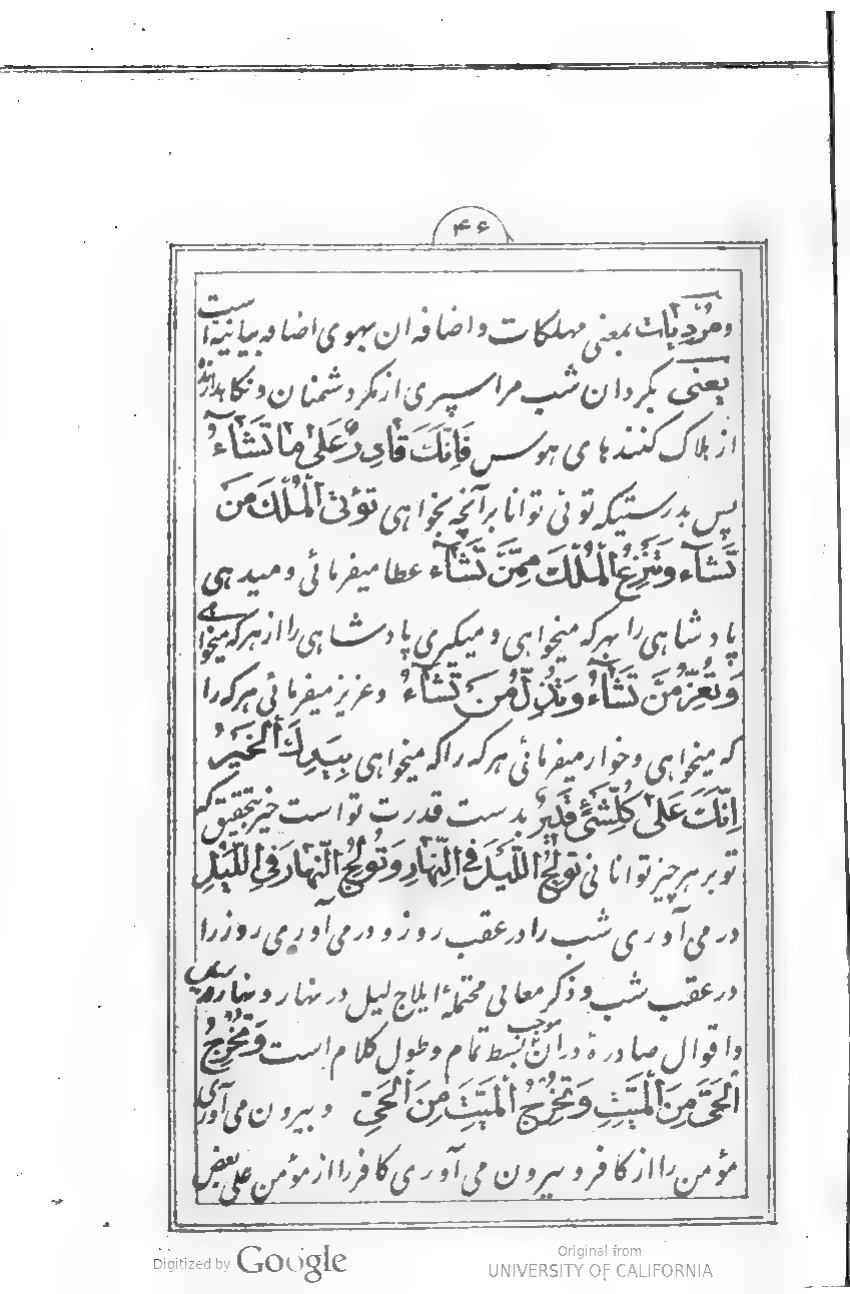 ۴۶
و مُرْدِيَاتْ بمعنی مهلکات و اضافه ان بهوی اضافه بیانیه است
يعنى بگردان شب مرا سپری از مکر دشمنان و نگاهدارنده
از هلاک کننده های هوس فَاِنَّكَ قَادِرٌ عَلىٰ مٰا تَشٰاءُ
پس بدرستیکه توئی توانا بر آنچه بخواهی تُؤْتِى الْمُلْكَ مَنْ
تَشٰاء وَتَنْزِعُ الْمُلْكَ مِمَّنْ تَشٰاء عطا میفرمائی و میدهی
پادشاهی را بهر که میخواهی و میگیری پادشاهی را از هر که میخواهی
وَتُعِزُّ مَنْ تَشٰاءُ وَتُذِلُّ مَنْ تَشٰاءُ و عزیز میفرمائی هر که را
که میخواهی و خوار میفرمائی هر که را که میخواهی بِيَدِكَ الْخَيْرُ
اِنَّكَ عَلىٰ كُلِّشَىْءٍ قَدِيرٌ بدست قدرت تو است خیر بتحقیق که
تو بر هر چیز توانائی تُولِجُ اللَّيْلَ فِى النَّهٰارِ وَتُولِجُ النَّهٰارَ فِى اللَّيْلِ
در می آوری شب را در عقب روز و در می آوری روز را
در عقب شب و ذکر معانی محتملهٔ ایلاج لیل در نهار و نهار در لیل
و اقوال صادرهٔ در ان موجب بسط تمام و طول کلام است وَتُخْرِجُ
الْحَىَّ مِنَ الْمَيِّتِ وَتُخْرِجُ الْمَيِّتَ مِنَ الْحَىِّ و بیرون می آوری
مؤمن را از کافر و بیرون می آوری کافر را از مؤمن علی بعض
Digitized by Google
Original from
UNIVERSITY OF CALIFORNIA